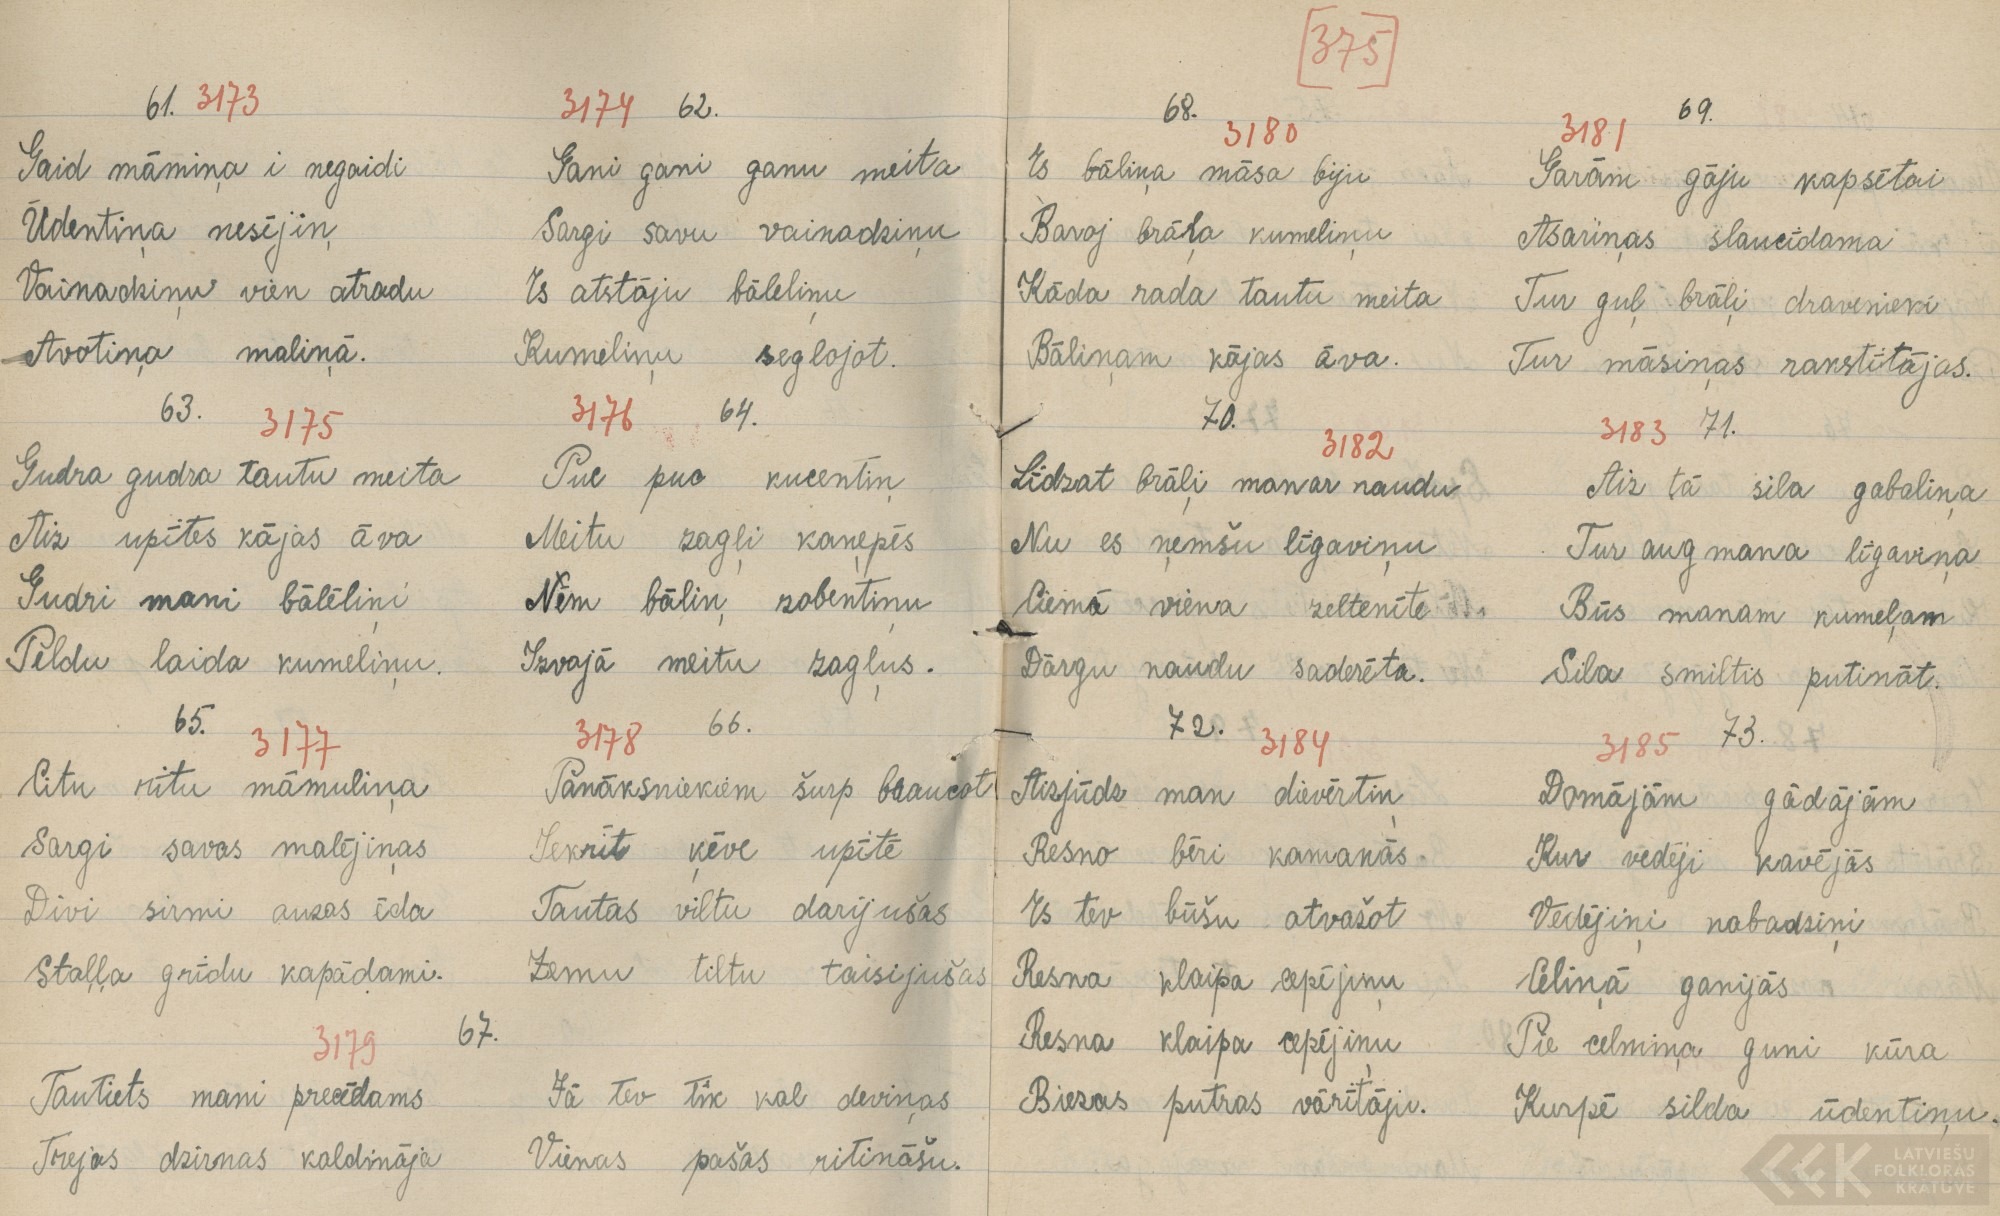 [375]
61. 3173
Gaid māmiņa i negaidi
Ūdentiņa nesējiņ
Vainadziņu vien atradu
Avotiņa maliņā.
3174 62.
Gani gani ganu meita
Sargi savu vainadziņu
Es atstāju bāleliņu
Kumeliņu seglojot.
63. 3175
Gudra gudra tautu meita
Aiz upītes kājas āva
Gudri mani bālēliņi
Peldu laida kumeliņu.
3176 64.
Puc puc kucentiņ
Meitu zagļi kaņepēs
Ņem bāliņ zobentiņu
Izvajā meitu zagļus.
65. 3177
Citu rītu māmuliņa
Sargi savas malējiņas
Divi sirmi auzas ēda
Staļļa grīdu kapādami.
3178 66.
Panāksniekiem šurp braucot
Iekrīt ķēve upītē
Tautas viltu darījušas
Zemu tiltu taisijušas
3179 67.
Tautiets mani precēdams
Trejas dzirnas kaldināja
Jā tev tik kal deviņas
Vienas pašas ritināšu.
68. 3180
Es bāliņa māsa biju
Baroj brāļa kumeliņu
Kāda rada tautu meita
Bāliņam kājas āva.
3181 69.
Garām gāju kapsētai
Asariņas slaucīdama
Tur guļ brāļi dravenieki
Tur māsiņas rakstītājas.
70. 3182
Līdzat brāļi man ar naudu
Nu es ņemšu līgaviņu
Ciemā viena zeltenīte
Dārgu naudu saderēta.
3183 71.
Aiz tā sila gabaliņa
Tur aug mana līgaviņa
Būs manam kumeļam
Sila smiltis putināt.
72. 3184
Aizjūdz man dievērtiņ
Resno bēri kamanās
Es tev būšu atvažot
Resna klaipa cepējiņu
Resna klaipa cepējiņu
Biezas putras vārītāju.
3185 73.
Domājām gādājām
Kur vedēji kavējās
Vedējiņi nabadziņi
Celiņā ganijās
Pie celmiņa guni kūra
Kurpē silda ūdentiņu.
LATVIEŠU
FOLKLORAS
KRĀTUVE